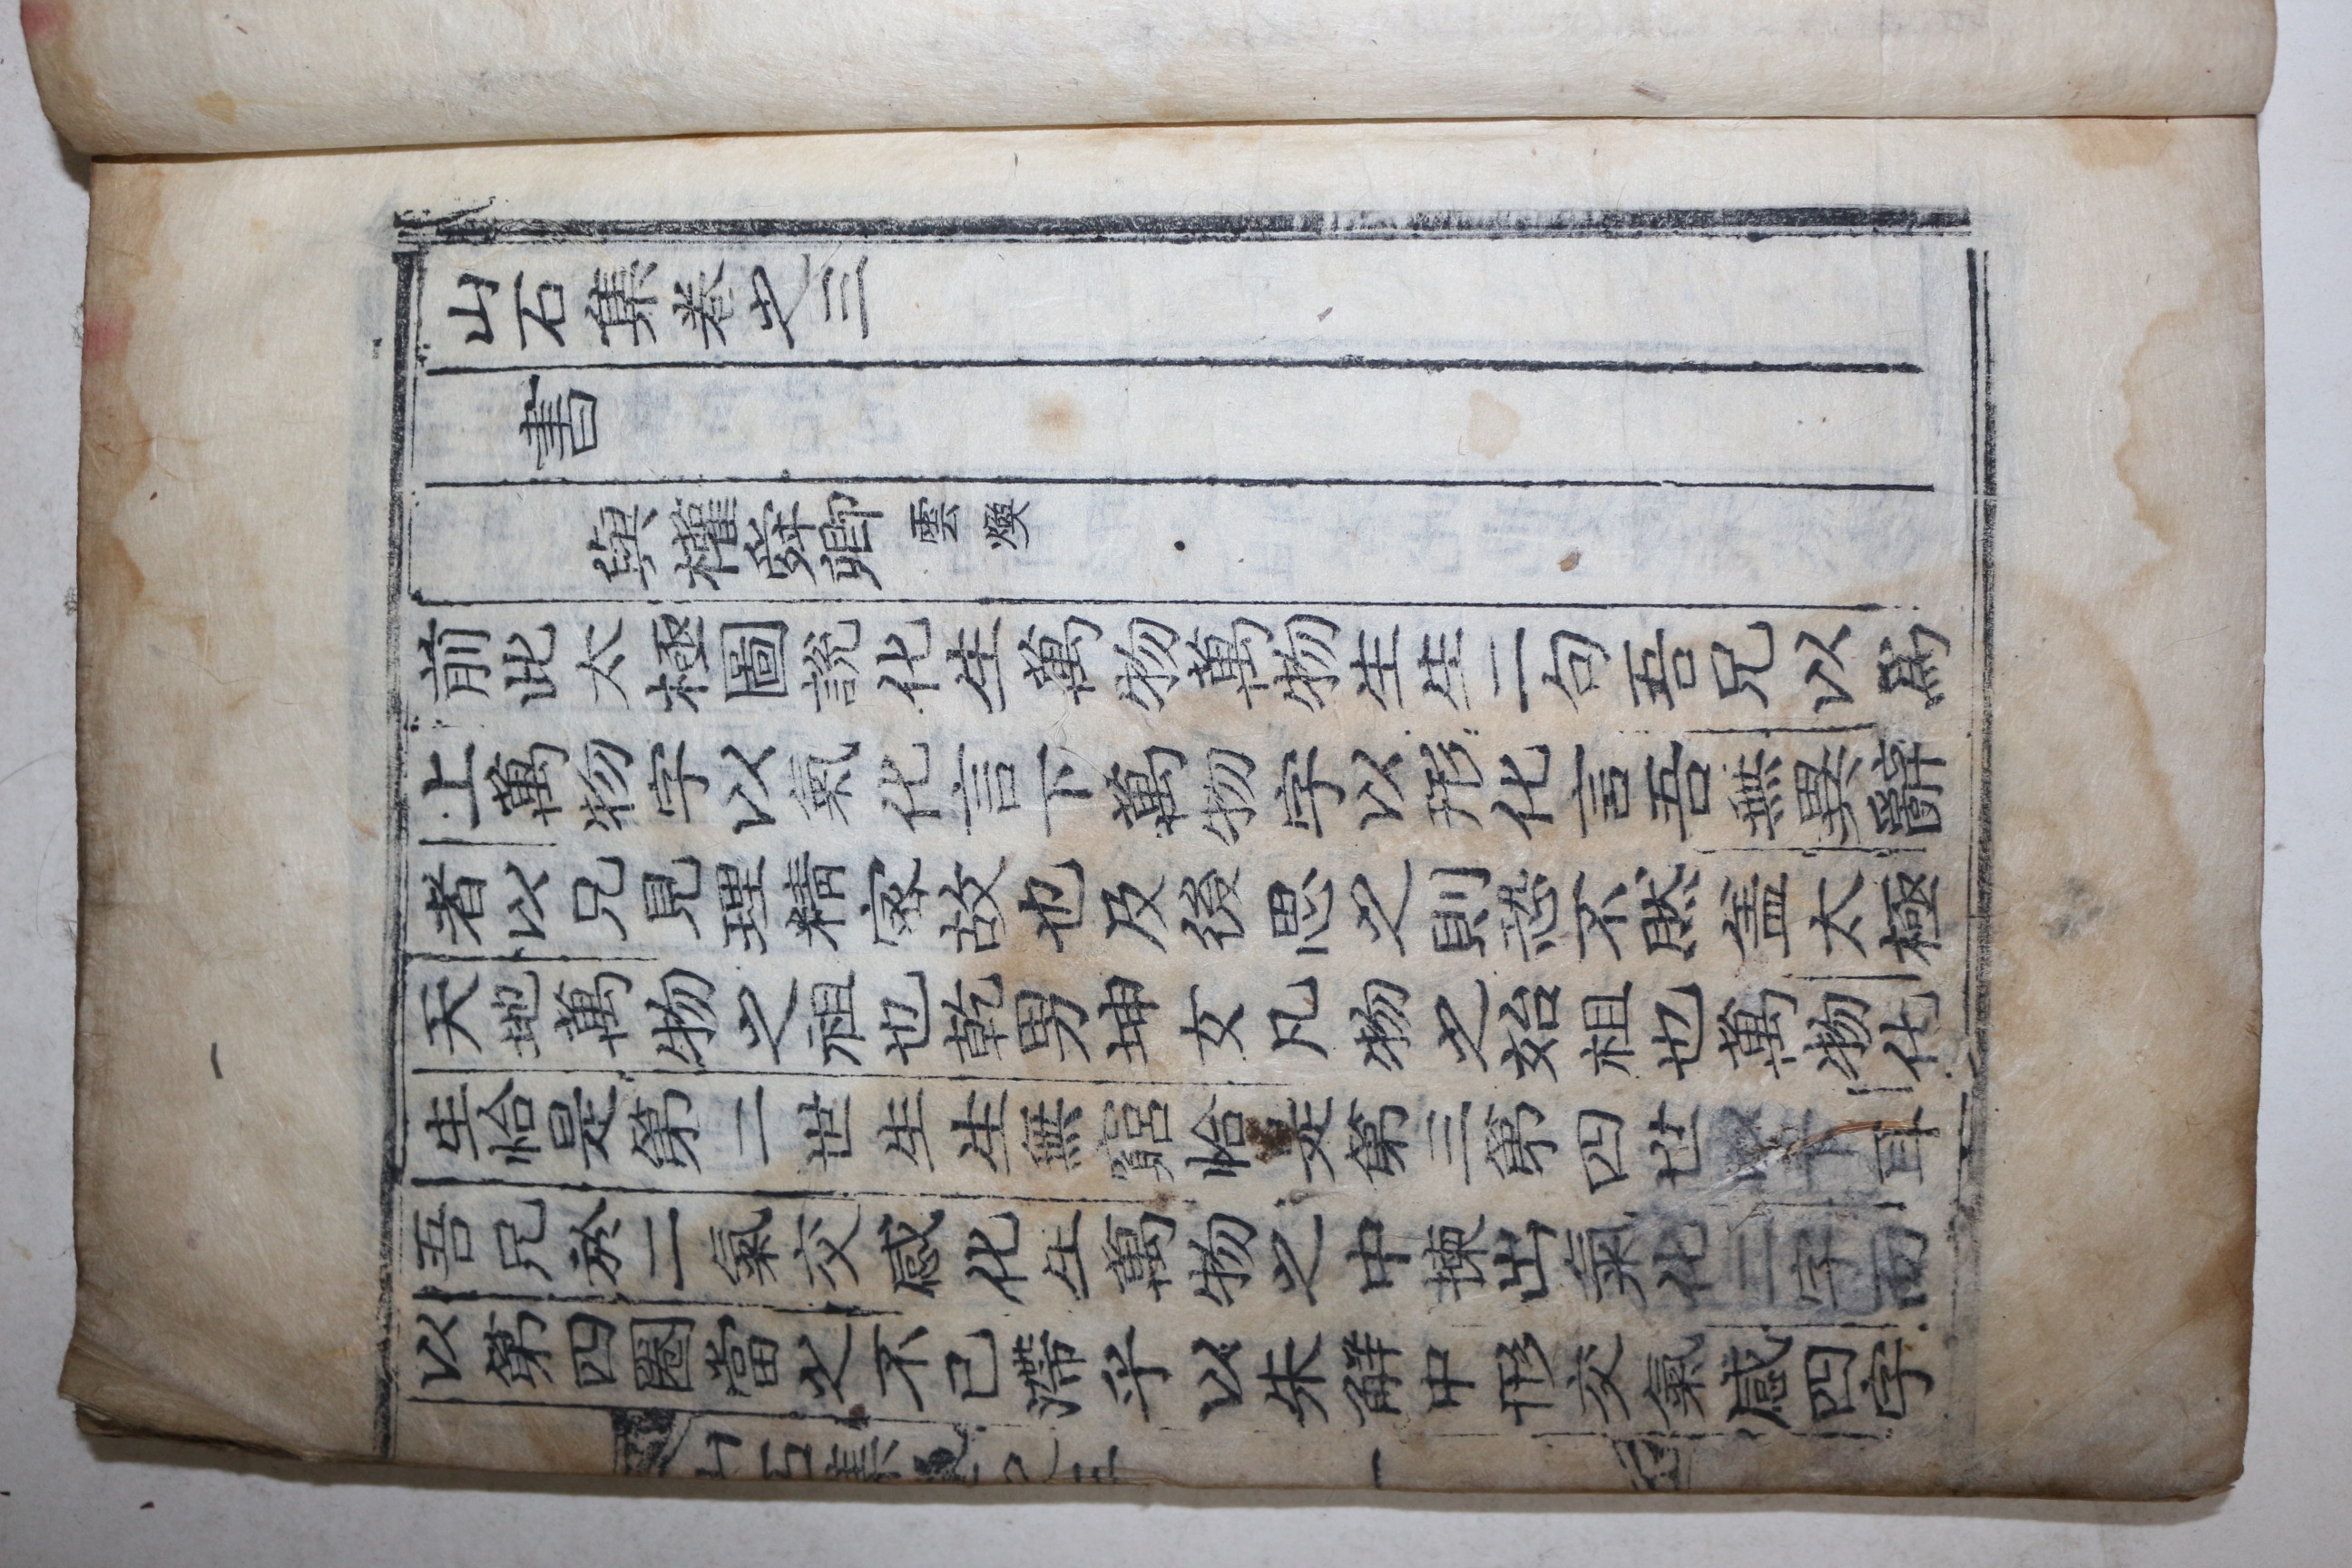 山石集卷之三
書
與權舜卿雲煥
前此太極圖說化生萬物萬物生生二句吾兄以爲
上萬物字以氣化言下萬物字以形化言吾無異辭
者以兄見理精密故也及後思之則恐不然盖太極
天地萬物之祖也乾男坤女凡物之始祖也萬物化
生恰是第二世生生無窮恰是第三第四世耳
吾兄於二氣交感化生萬物之中揀出氣化二字而
以第四圈當之不已滯乎以朱解中形交氣感四字
山石集卷之三 一